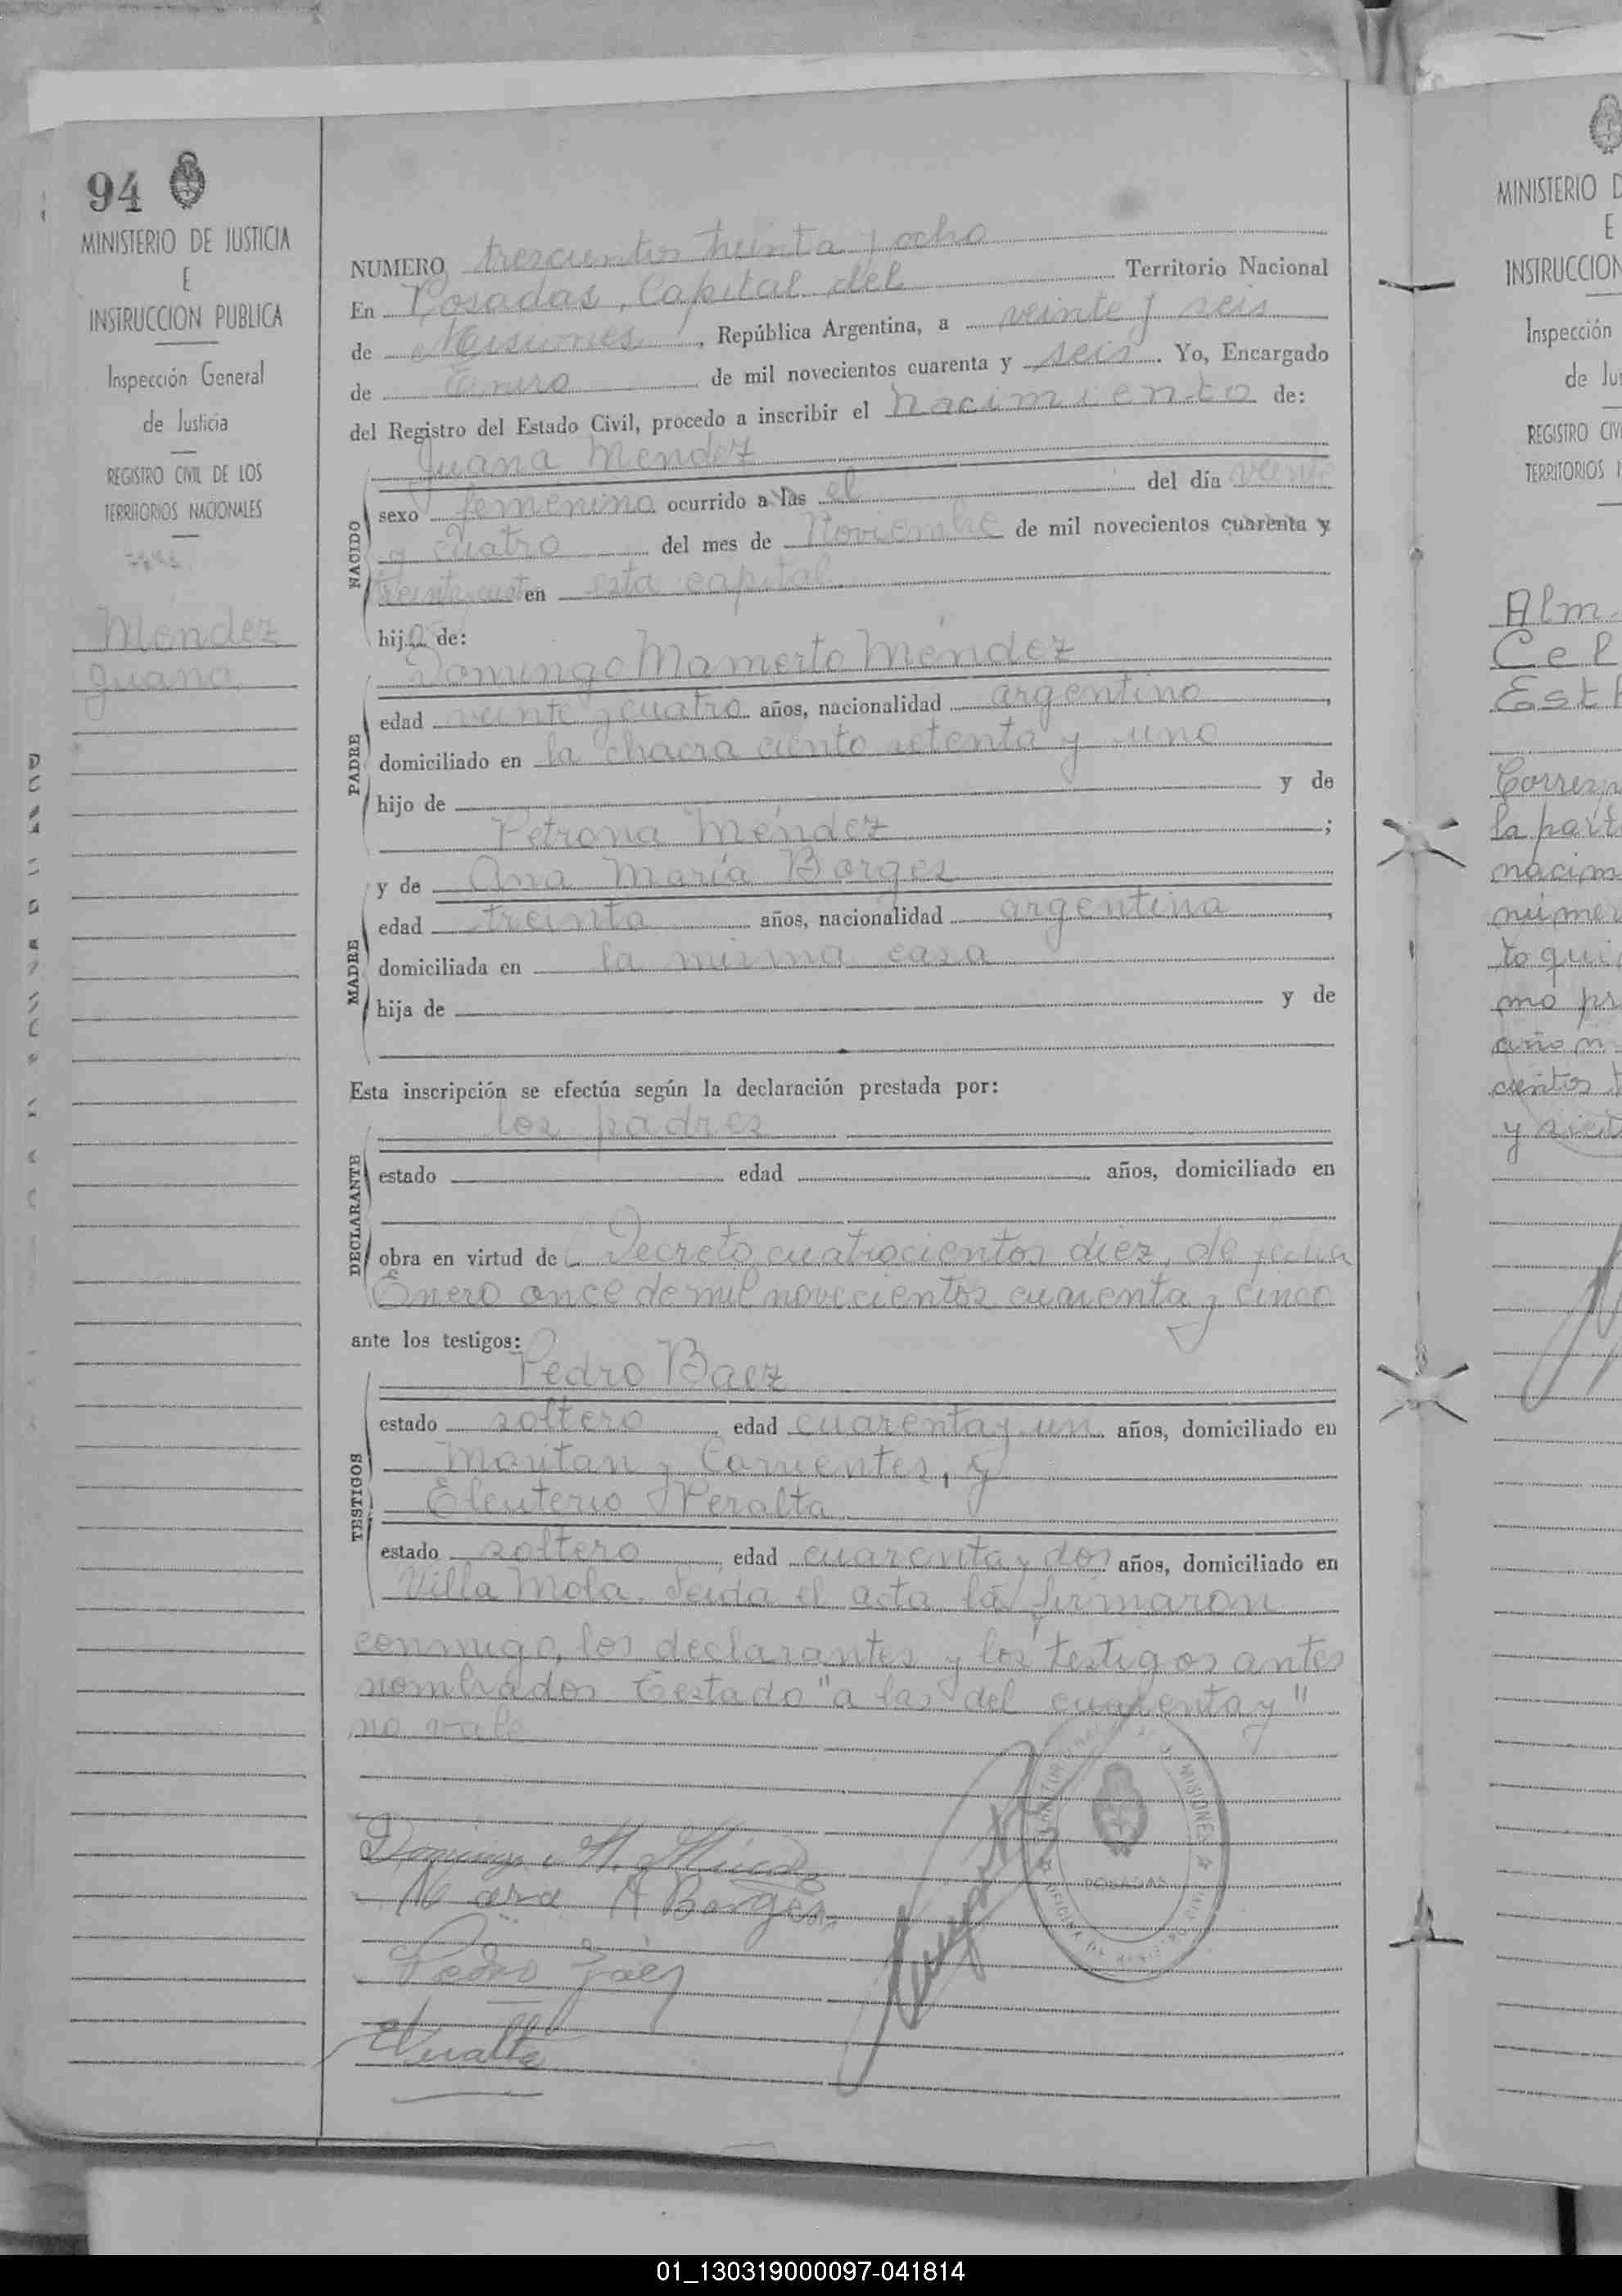 94
MINISTERIO DE JUSTICIA
E
INSTRUCCION PUBLICA
Inspección General
de Justicia
REGISTRO CIVIL DE LOS
TERRITORIOS NACIONALES
Méndez
Juana
NUMERO trescientos treinta y ocho
En Posadas, Capital del Territorio Nacional
de Misiones, República Argentina, a veinte y seis
de Enero de mil novecientos cuarenta y seis. Yo, Encargado
del Registro del Estado Civil, procedo a inscribir el nacimiento de:
Juana Mendez
NACIDO
sexo femenino ocurrido a las el del día veinte
y cuatro del mes de Noviembre de mil novecientos cuarenta y
en esta capital.
hija de:
Domingo Mamerto Méndez
PADRE
edad veinte y cuatro años, nacionalidad argentino,
domiciliado en la chacra ciento setenta y uno
hijo de y de
Petrona Méndez;
y de Ana María Borges
MADRE
edad treinta años, nacionalidad argentina,
domiciliada en la misma casa
hija de y de
Esta inscripción se efectúa según la declaración prestada por:
los padres
DECLARANTE
estado edad años, domiciliado en
obra en virtud de Decreto cuatrocientos diez, de fecha
Enero once de mil novecientos cuarenta y cinco
ante los testigos:
Pedro Baez
TESTIGOS
estado soltero edad cuarenta y un años, domiciliado en
y Corrientes, y
Eleuterio Peralta
estado soltero edad cuarenta y dos años, domiciliado en
Villa Mola. Leída el acta la firmaron
conmigo, los declarantes y los testigos antes
nombrados. Testado "a las del cuarenta y"
no vale
Domingo M. Méndez
A Borges
Pedro Báez
MISIONES
POSADAS
MINISTERIO D
E
INSTRUCCION
Inspección
de Ju
REGISTRO CIV
TERRITORIOS
Alm
Cel
Est
Corresp
la part
nacim
númer
to qui
mo pr
año n
cientos
y
01_130319000097-041814